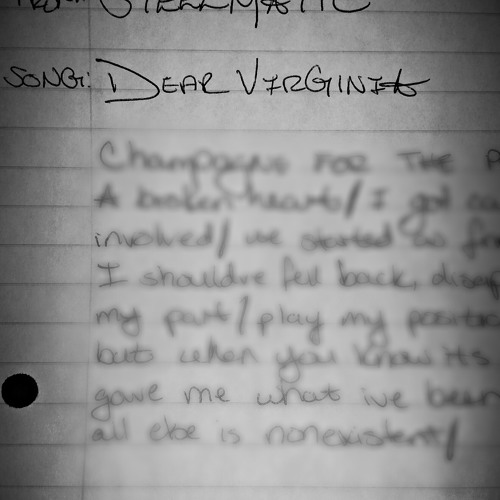 SONG: DEAR VIRGINIA
Champagne FOR THE
A broken hearts/ I got
involved/ we started as
I shouldve fell back,
my part/ play my
but when you know its
gave me what ive been
all else is nonexistent/